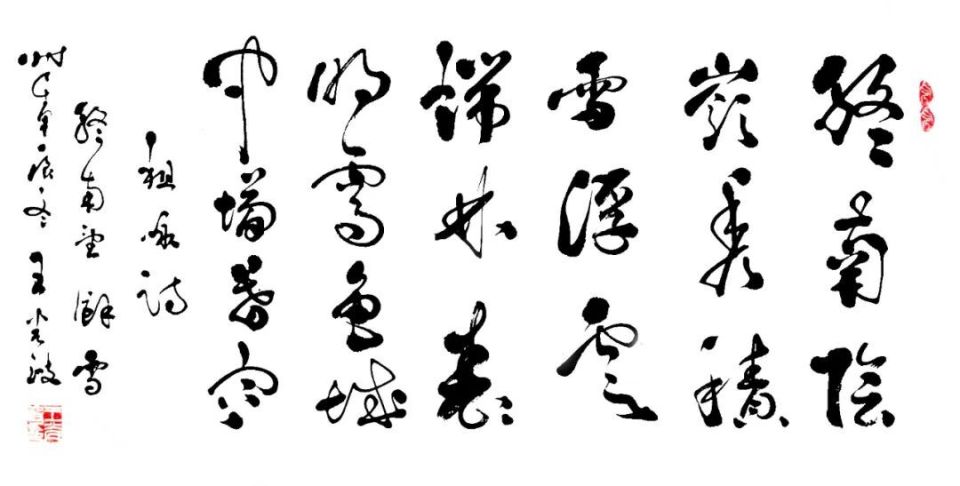 終南陰
嶺秀積
雪浮雲
端林表
明霽色城
中增暮寒
祖詠詩
終南望餘雪
冬王